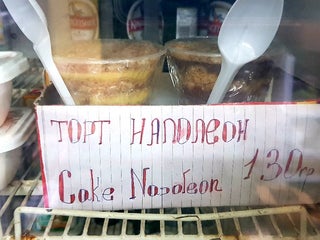 ТОРТ НАПОЛЕОН
Cake Napoleon 130ср